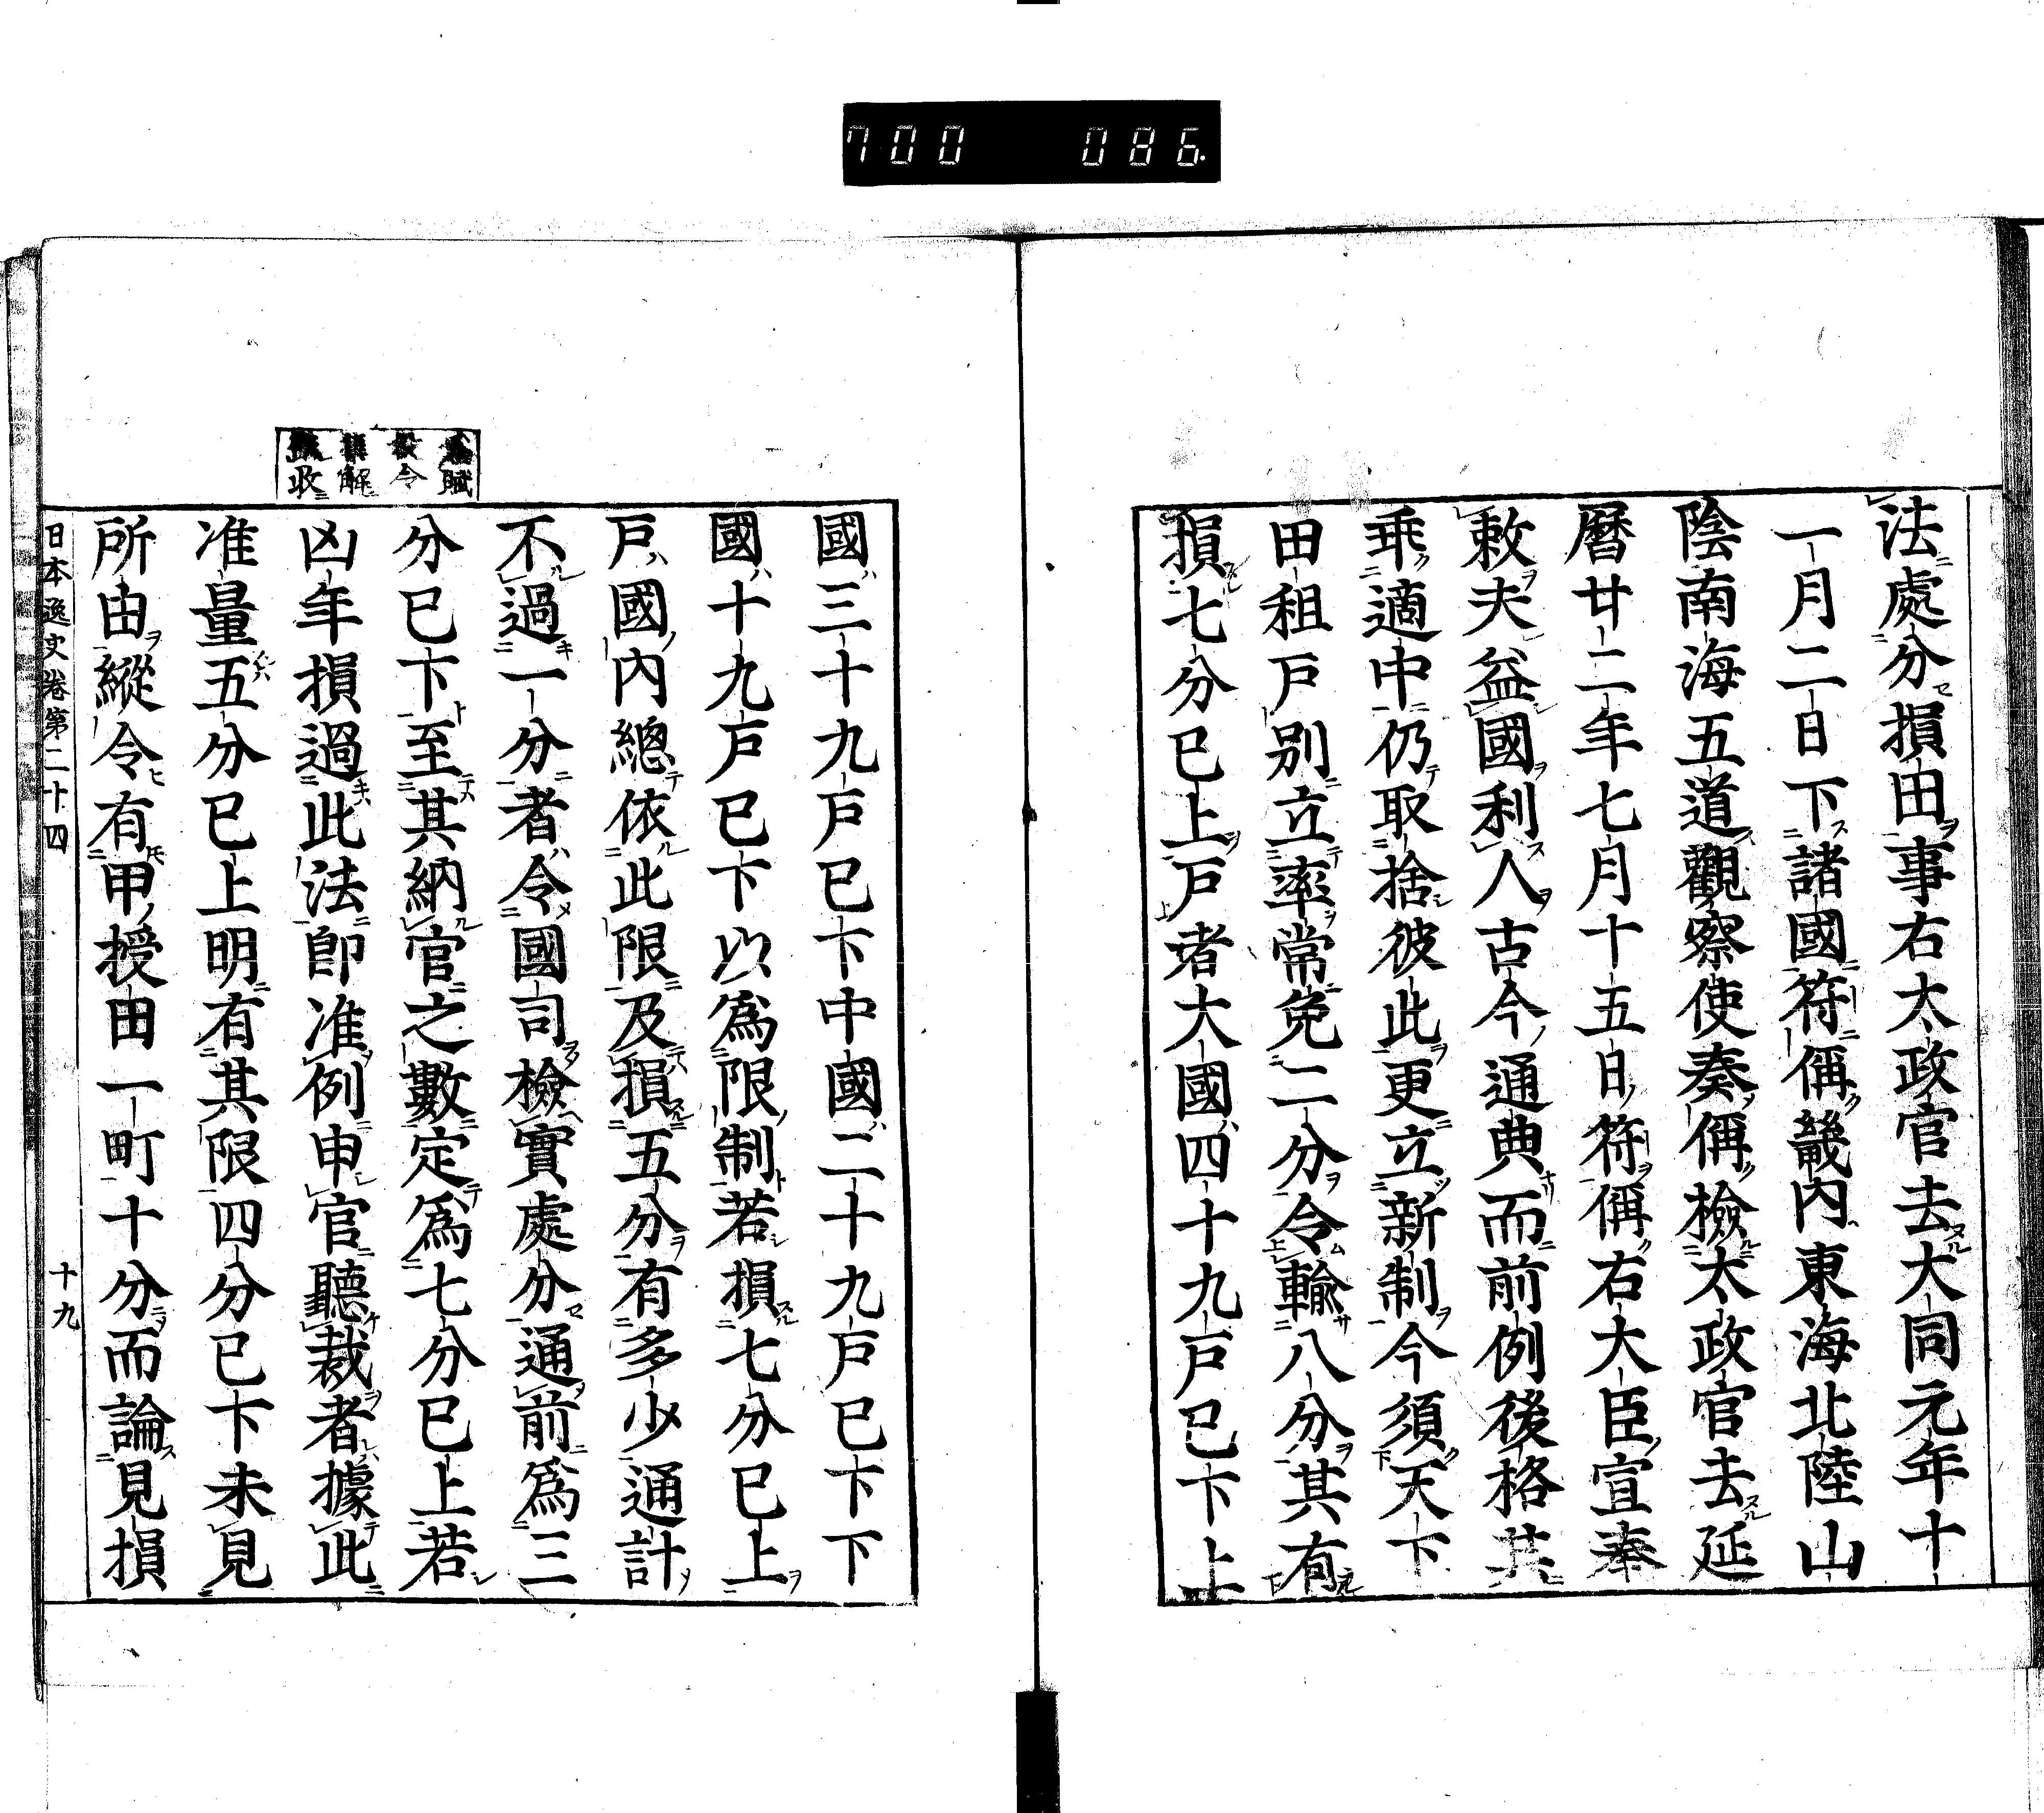 700 086.
法處分損田事右太政官去大同元年十
一月二日下諸國符偁畿內東海北陸山
陰南海五道觀察使奏偁檢太政官去延
曆廿二年七月十五日符偁右大臣宣奉
敕夫益國利人古今通典而前例後格共
乖適中仍取捨彼此更立新制今須天下
田租戶別立率常免二分令輸八分其有
損七分已上戶者大國四十九戶已下上
國三十九戶已下中國二十九戶已下下
國十九戶已下以爲限制若損七分已上
戶國內總依此限及損五分有多少通計
不過一分者令國司檢實處分通前爲三
分已下至其納官之數定爲七分已上若
凶年損過此法卽准例申官聽裁者據此
准量五分已上明有其限四分已下未見
所由縱令有甲授田一町十分而論見損
賦
令
解
收
日本逸史卷第二十四 十九